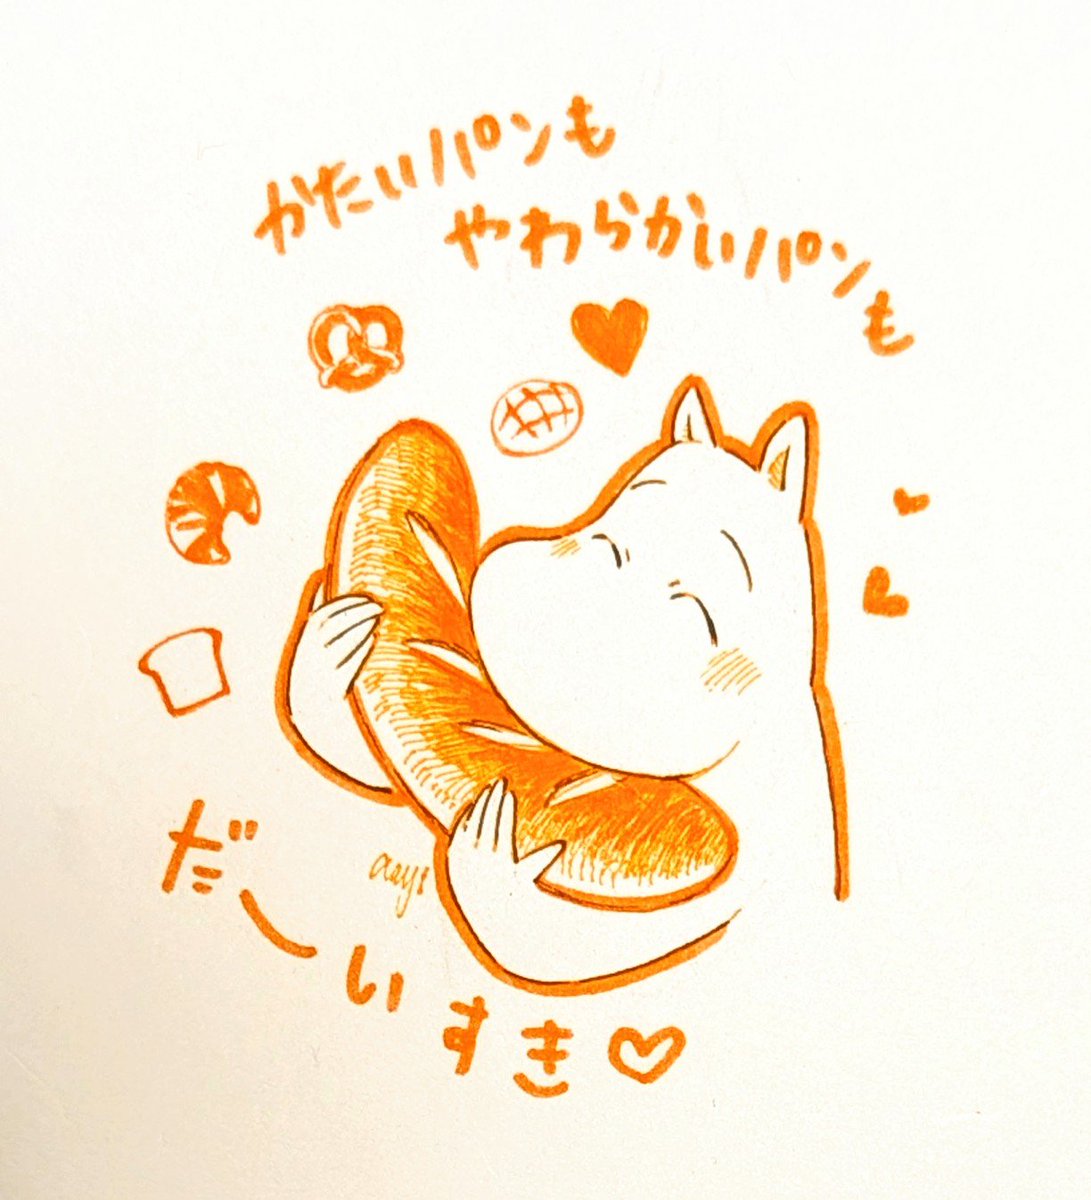 かたいパンも
やわらかいパンも
だーいすき♡